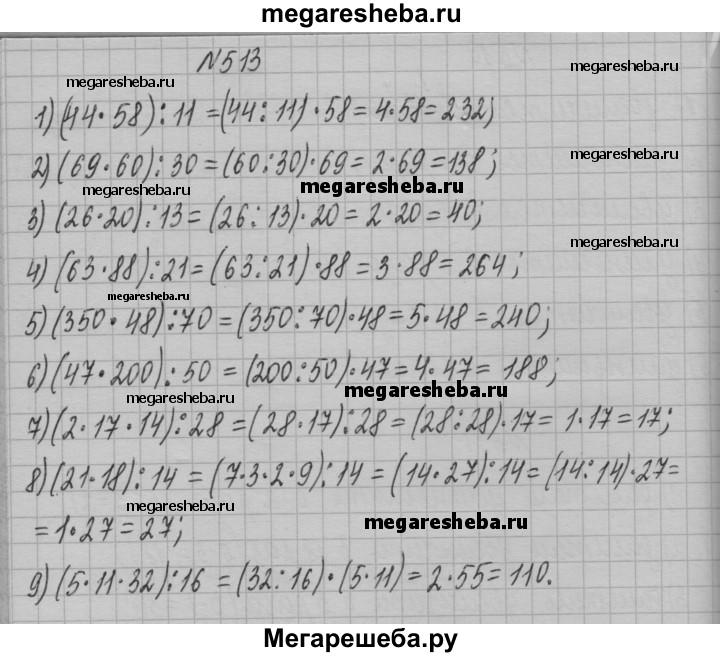 megaresheba.ru
№513
megaresheba.ru
megaresheba.ru
1) (44·58):11=(44:11)·58=4·58=232;
2) (69·60):30=(60:30)·69=2·69=138;
megaresheba.ru
megaresheba.ru
3) (26·20):13=(26:13)·20=2·20=40;
megaresheba.ru
4) (63·88):21=(63:21)·88=3·88=264;
megaresheba.ru
5) (350·48):70=(350:70)·48=5·48=240;
6) (47·200):50=(200:50)·47=4·47=188;
megaresheba.ru
megaresheba.ru
7) (2·17·14):28=(28·17):28=(28:28)·17=1·17=17;
megaresheba.ru
8) (21·18):14=(7·3·2·9):14=(14·27):14=(14:14)·27=
=1·27=27;
megaresheba.ru
megaresheba.ru
9) (5·11·32):16=(32:16)·(5·11)=2·55=110.
Мегарешеба.ру